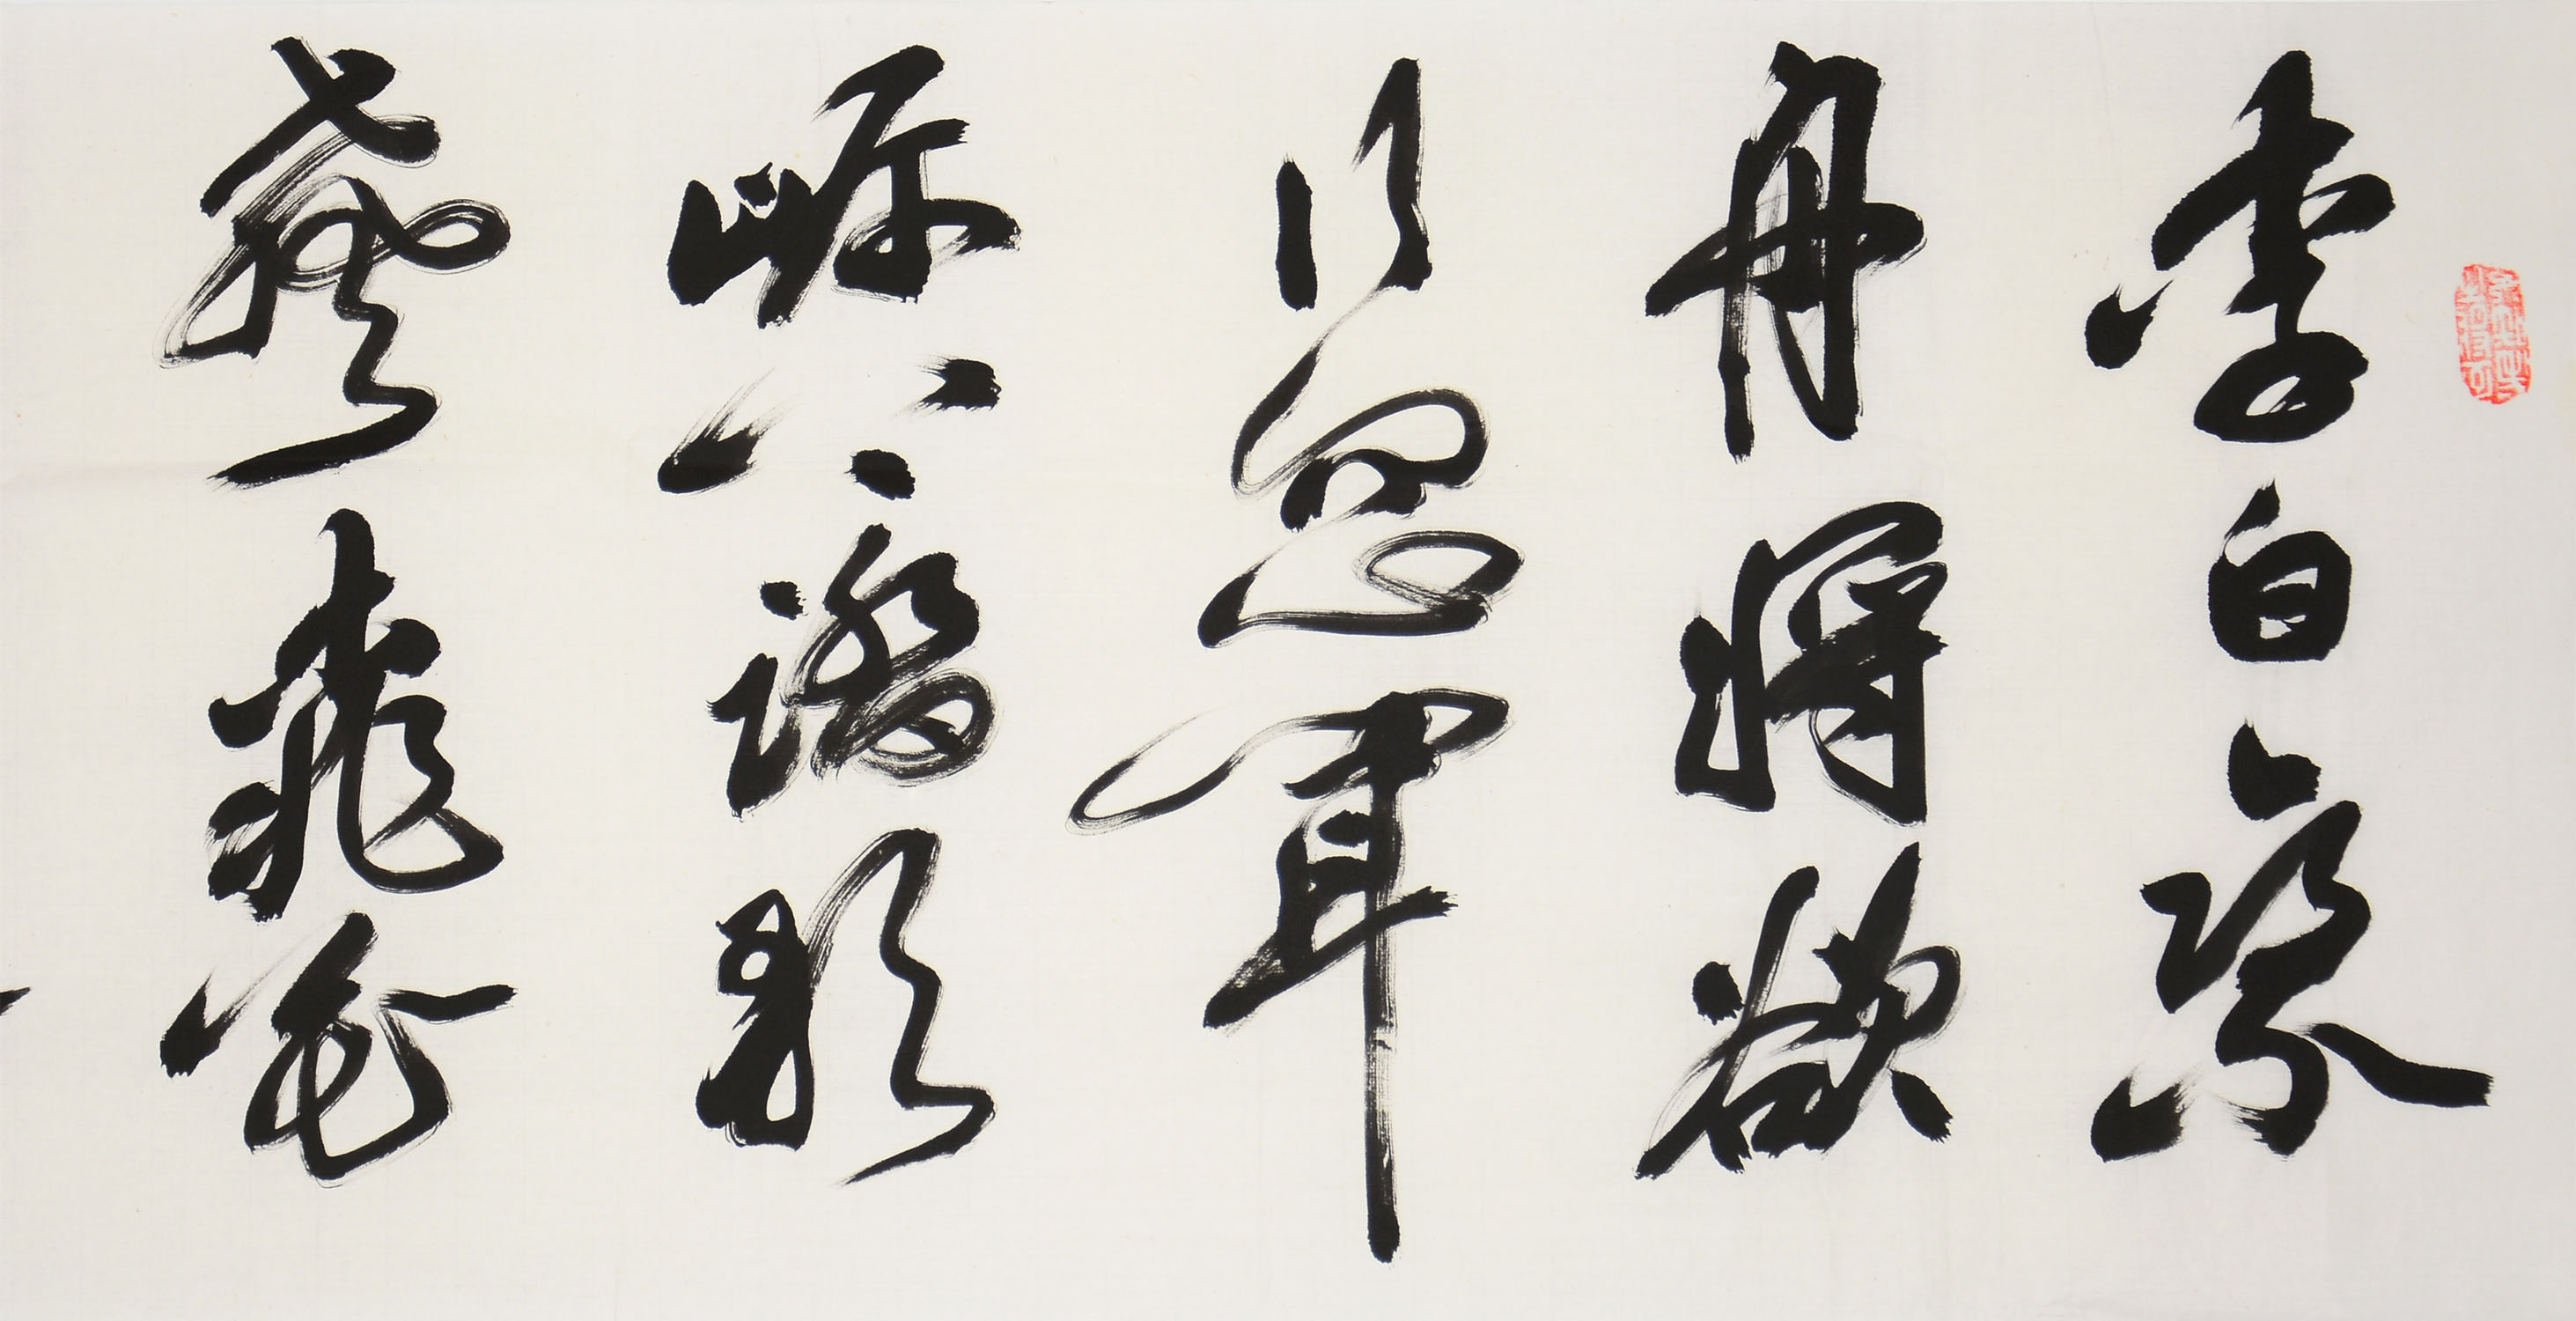 李白乘
舟將欲
行忽聞
岸上踏歌
聲桃花